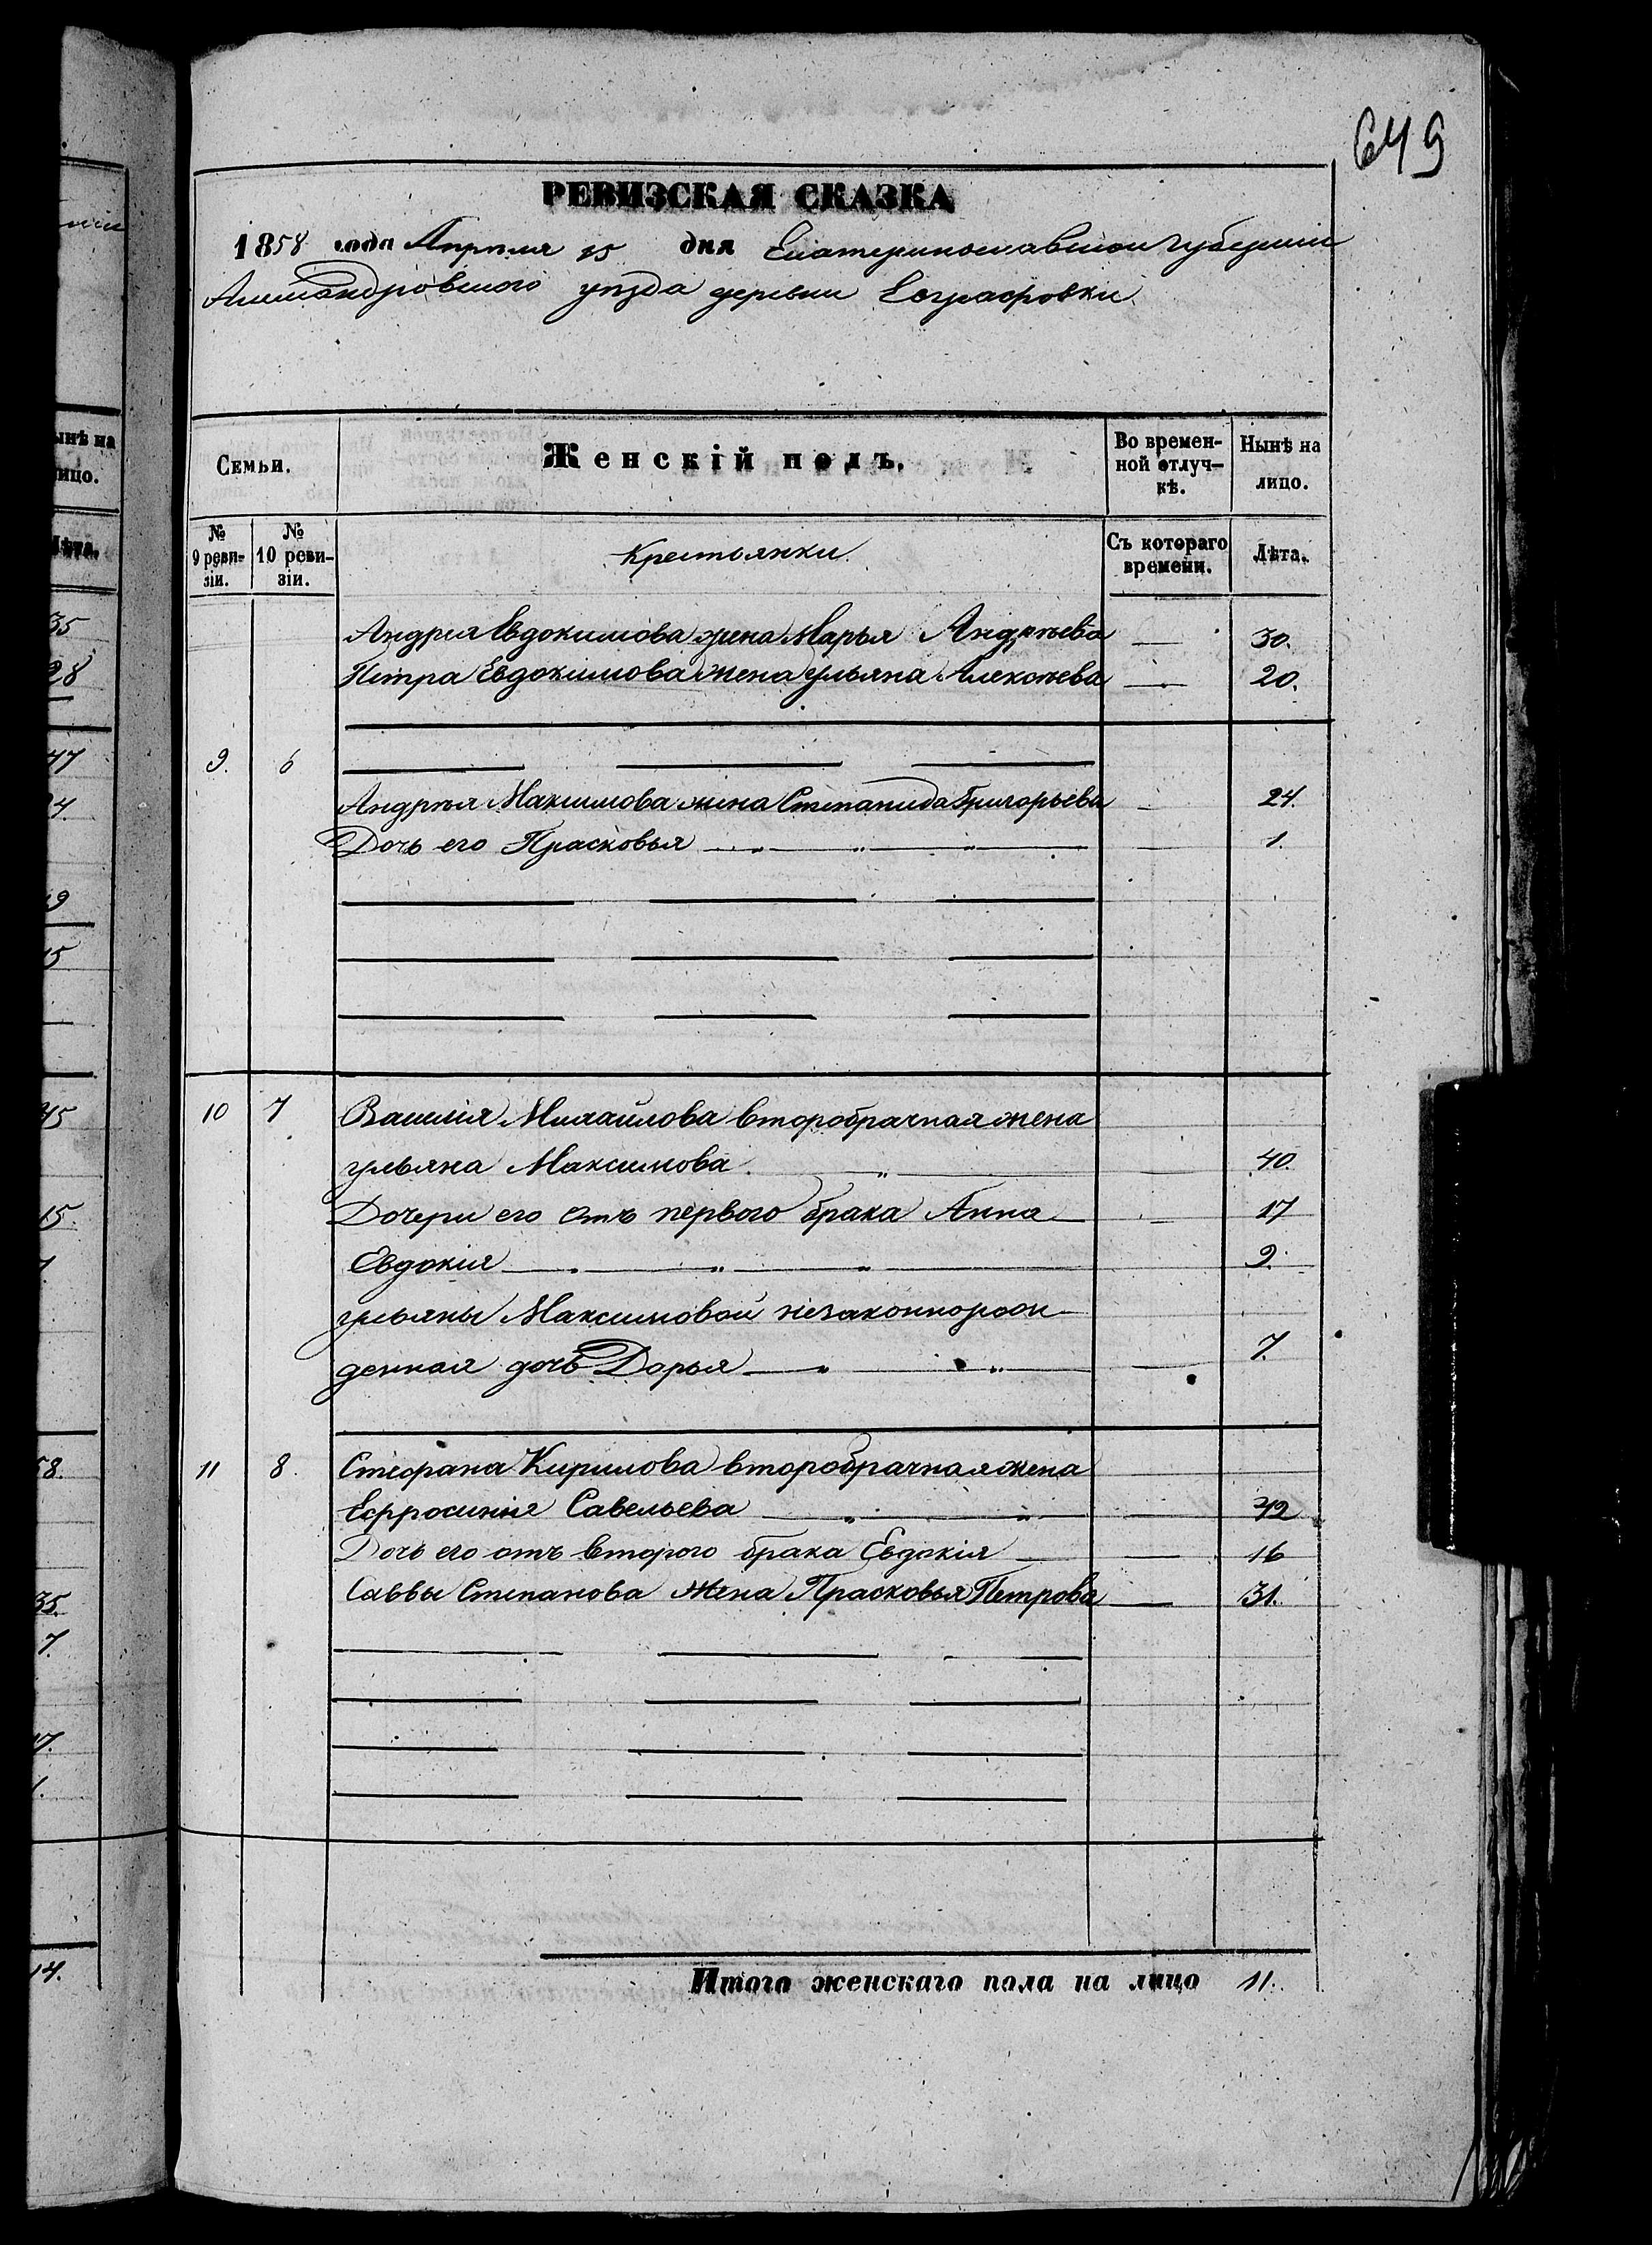 649
РЕВИЗСКАЯ СКАЗКА
1858 года Апрѣля 15 дня Екатеринославской губерніи
Александровскаго уѣзда деревни Евграфовки
Семьи. Женскій полъ. Во времен- Нынѣ на
ной отлуч- лицо.
кѣ.
№ № Крестьянки Съ котораго Лѣта.
9 реви- 10 реви- времени.
зіи. зіи.
Андрея Евдокимова жена Марья Андреева — 30.
Петра Евдокимова жена Ульяна Алексѣева — 20.
9. 6
Андрѣя Максимова жена Степанида Григорьева — 24.
Дочь его Прасковья — 1.
10 7 Василія Михайлова второбрачная жена
Ульяна Максимова — 40.
Дочери его отъ первого брака Анна — 17
Евдокія — 9.
Ульяны Максимовой незаконнорож-
денная дочь Дарья — 7.
11 8. Стефана Кирилова второбрачная жена
Ефросинія Савельева — 42
Дочь его отъ второго брака Евдокія — 16
Саввы Степанова жена Прасковья Петрова — 31.
Итого женскаго пола на лицо 11.
ынѣ на
ицо.
Лѣта.
35
28
47
24.
49
15
45
15.
58.
35.
7.
17.
14.